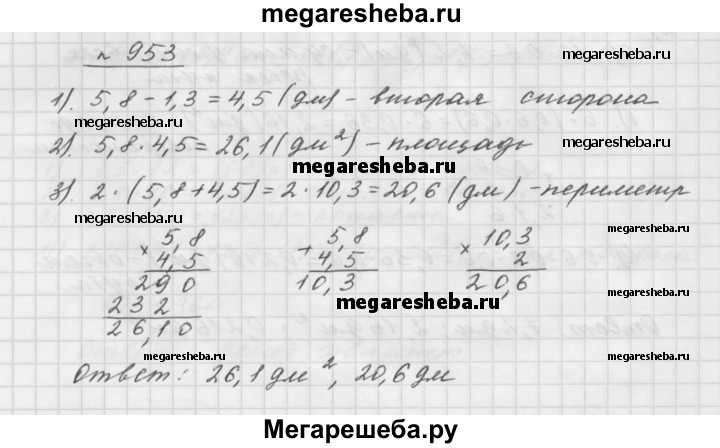 megaresheba.ru
№ 953
megaresheba.ru
1). 5,8 - 1,3 = 4,5 (дм) - вторая сторона
megaresheba.ru
2). 5,8 · 4,5 = 26,1 (дм²) - площадь
megaresheba.ru
megaresheba.ru
3). 2 · (5,8 + 4,5) = 2 · 10,3 = 20,6 (дм) - периметр
× 5,8 + 5,8 × 10,3
4,5 4,5 2
290 10,3 20,6
megaresheba.ru
232
megaresheba.ru
26,10
megaresheba.ru
megaresheba.ru
Ответ: 26,1 дм², 20,6 дм
megaresheba.ru
Мегарешеба.ру